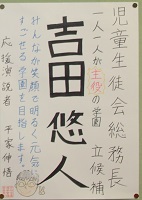 児童生徒会総務長
立候補
一人一人が主役の学園
吉田悠人
みんなが笑顔で明るく元気に
すごせる学園を目指します。
応援演説者 平家伸悟